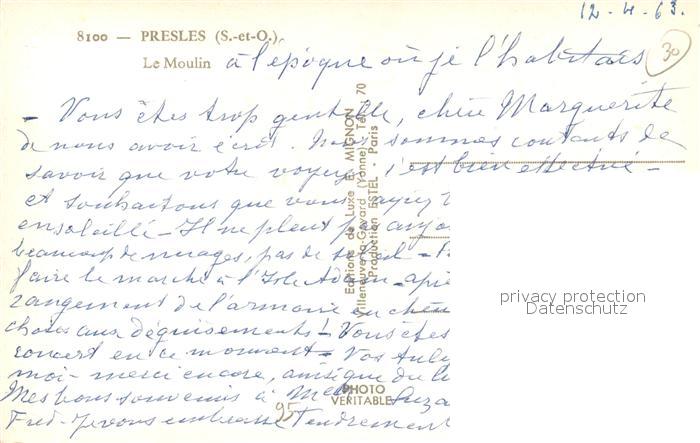 12-4-63.
8100 — PRESLES (S.-et-O.)
Le Moulin à l'époque où je l'habitais
30
- Vous êtes trop gentille, chère Marguerite
de nous avoir écrit. Nous sommes contents de
savoir que votre voyage s'est bien effectué -
et souhaitons que vous ayiez
ensoleillé - Il ne pleut pas
beaucoup de nuages, pas de soleil -
faire le marché à l'Isle Adam - apr
rangement de l'armoire en
choses aux déguisements! - Vous êtes
concert en ce moment - Vos
moi - merci encore, ainsi que du
Mes bons souvenirs à
Fred - Je vous embrasse tendrement
Editions de Luxe E. MIGNON
Villeneuve-la-Guyard (Yonne) Tél. : 70
Production ESTEL - Paris
PHOTO
VERITABLE
95
privacy protection
Datenschutz